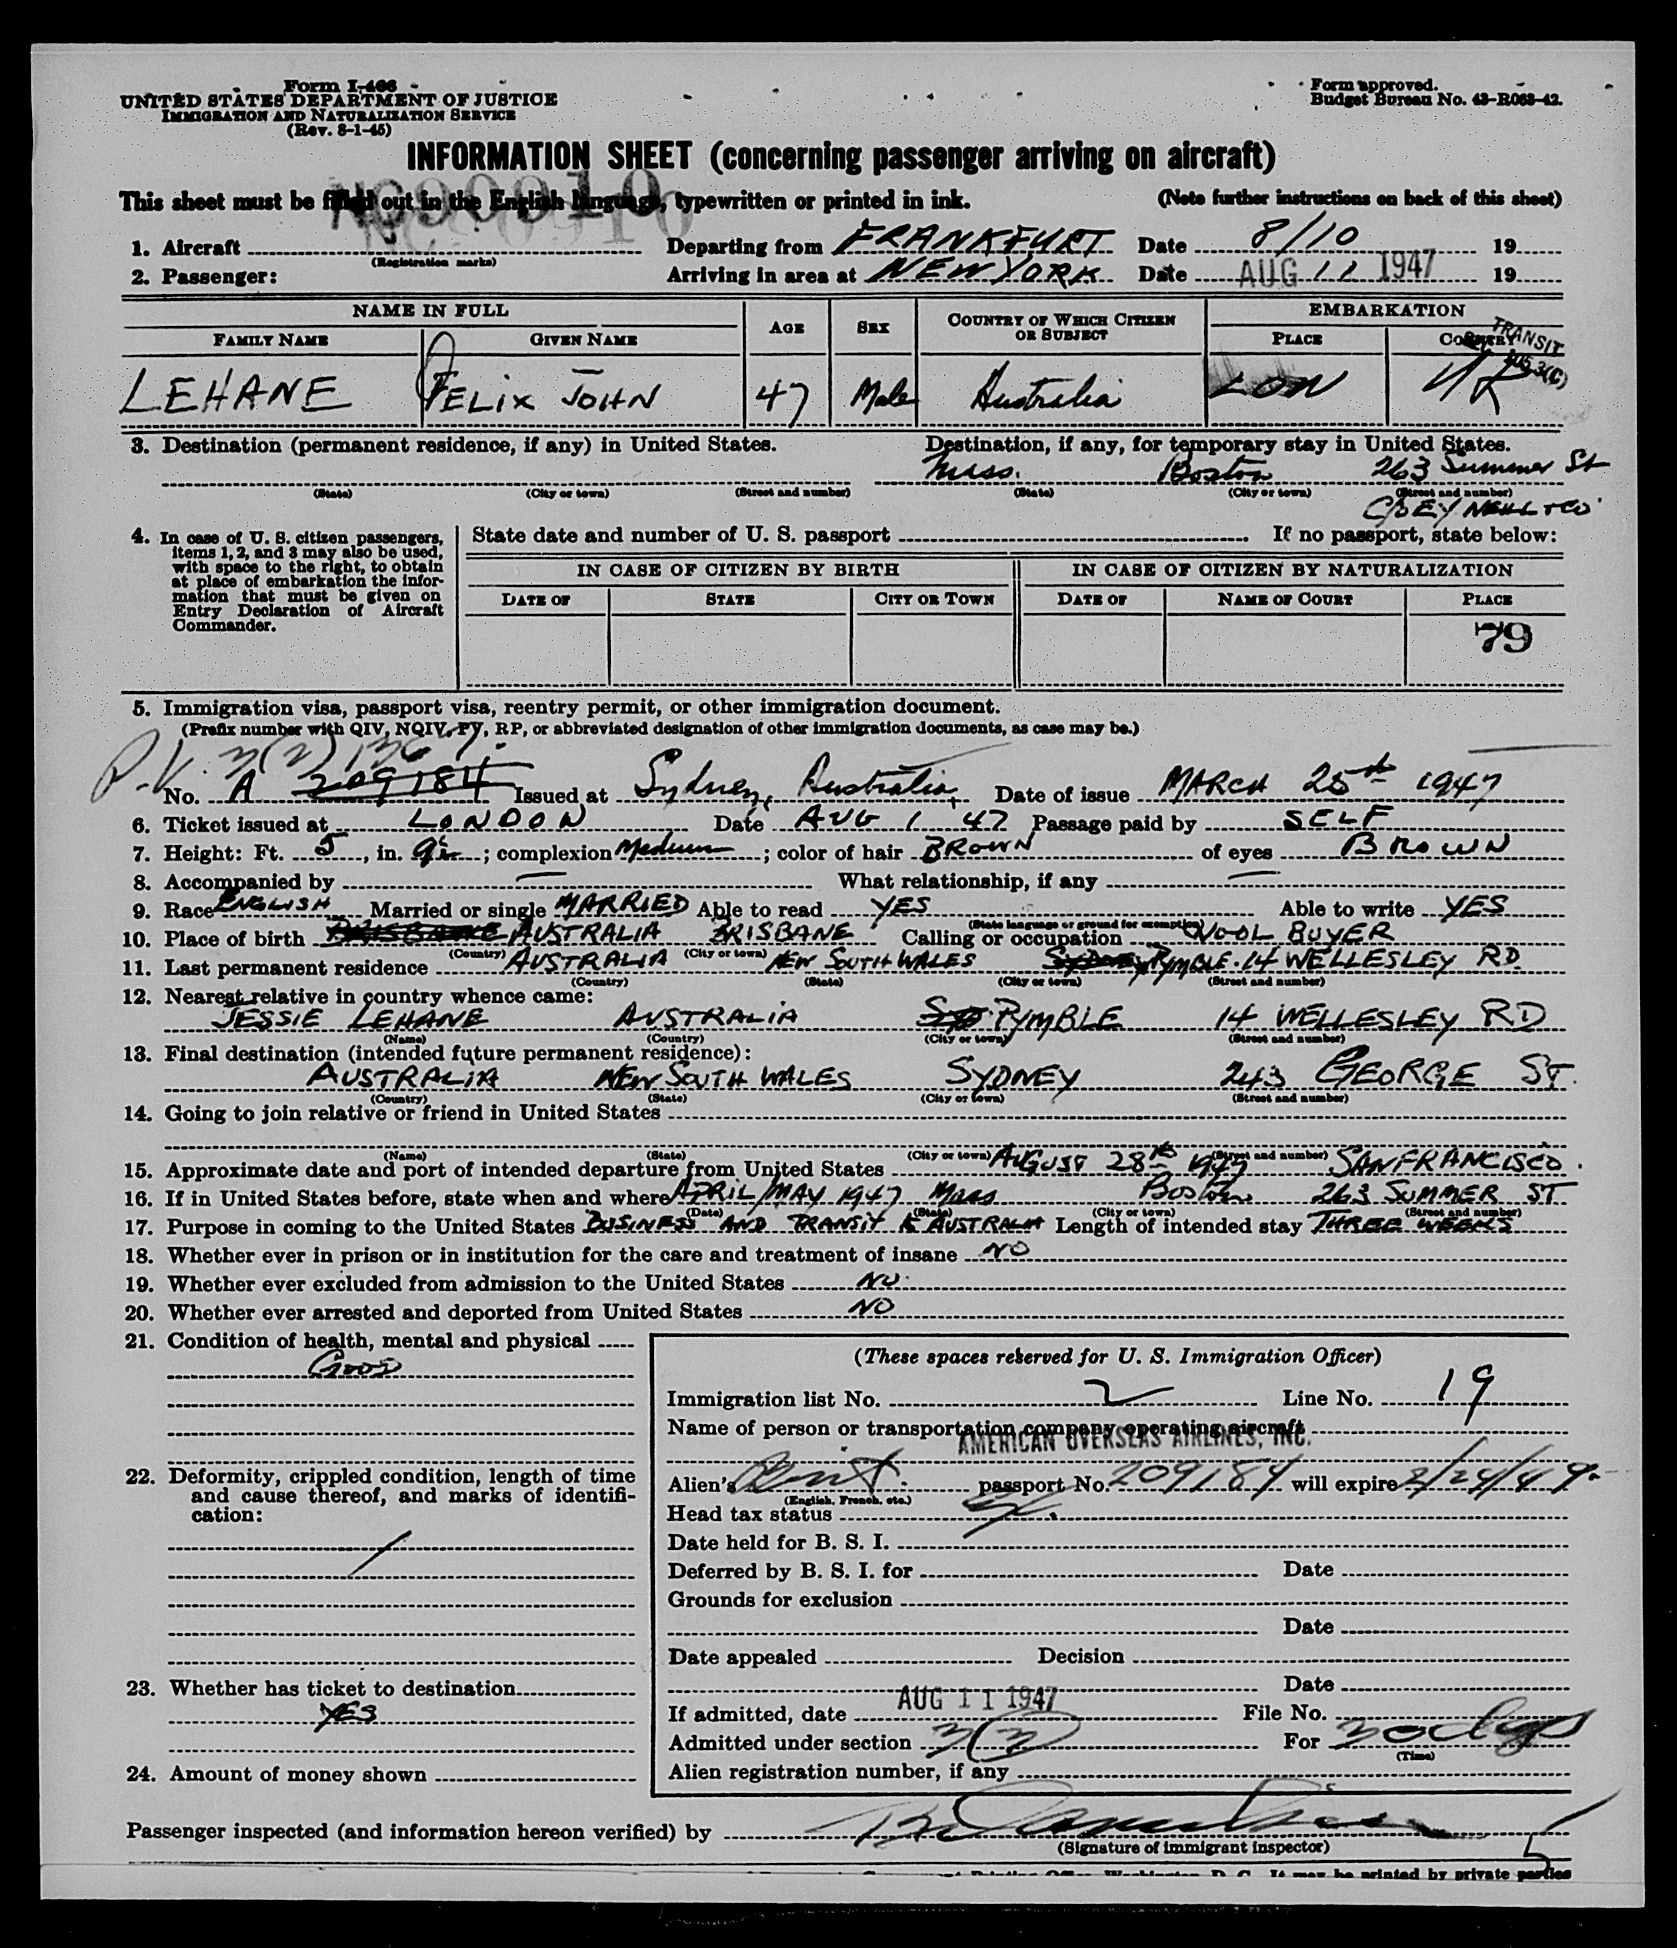 Form I-466
UNITED STATES DEPARTMENT OF JUSTICE
IMMIGRATION AND NATURALIZATION SERVICE
(Rev. 8-1-45)
Form approved.
Budget Bureau No. 43-R063-42.
INFORMATION SHEET (concerning passenger arriving on aircraft)
This sheet must be filled out in the English language, typewritten or printed in ink. (Note further instructions on back of this sheet)
NC90910
1. Aircraft Departing from FRANKFURT Date 8/10 19
(Registration marks)
2. Passenger: Arriving in area at NEW YORK Date AUG 11 1947 19
NAME IN FULL AGE SEX COUNTRY OF WHICH CITIZEN OR SUBJECT EMBARKATION
FAMILY NAME GIVEN NAME PLACE COUNTRY
TRANSIT
LEHANE FELIX JOHN 47 Male Australia LON UK
3. Destination (permanent residence, if any) in United States. Destination, if any, for temporary stay in United States.
Mass. Boston 263 Summer St
(State) (City or town) (Street and number) (State) (City or town) (Street and number)
4. In case of U. S. citizen passengers, items 1, 2, and 3 may also be used, with space to the right, to obtain at place of embarkation the information that must be given on Entry Declaration of Aircraft Commander.
State date and number of U. S. passport If no passport, state below:
IN CASE OF CITIZEN BY BIRTH IN CASE OF CITIZEN BY NATURALIZATION
DATE OF STATE CITY OR TOWN DATE OF NAME OF COURT PLACE
79
5. Immigration visa, passport visa, reentry permit, or other immigration document.
(Prefix number with QIV, NQIV, PV, RP, or abbreviated designation of other immigration documents, as case may be.)
No. A 209184 Issued at Sydney, Australia Date of issue MARCH 25th 1947
6. Ticket issued at LONDON Date AUG 1 47 Passage paid by SELF
7. Height: Ft. 5, in. 9½; complexion Medium; color of hair BROWN of eyes BROWN
8. Accompanied by — What relationship, if any —
9. Race ENGLISH Married or single MARRIED Able to read YES Able to write YES
(State language or ground for exemption)
10. Place of birth BRISBANE AUSTRALIA BRISBANE Calling or occupation WOOL BUYER
(Country) (City or town)
11. Last permanent residence AUSTRALIA NEW SOUTH WALES SYDNEY PYMBLE. 14 WELLESLEY RD
(Country) (State) (City or town) (Street and number)
12. Nearest relative in country whence came:
JESSIE LEHANE AUSTRALIA PYMBLE 14 WELLESLEY RD
(Name) (Country) (City or town) (Street and number)
13. Final destination (intended future permanent residence):
AUSTRALIA NEW SOUTH WALES SYDNEY 243 GEORGE ST.
(Country) (State) (City or town) (Street and number)
14. Going to join relative or friend in United States
(Name) (State) (City or town) (Street and number)
15. Approximate date and port of intended departure from United States AUGUST 28th 1947 SAN FRANCISCO.
16. If in United States before, state when and where APRIL/MAY 1947 Mass Boston 263 SUMMER ST
(Date) (State) (City or town) (Street and number)
17. Purpose in coming to the United States BUSINESS AND TRANSIT to AUSTRALIA Length of intended stay THREE WEEKS
18. Whether ever in prison or in institution for the care and treatment of insane NO
19. Whether ever excluded from admission to the United States NO.
20. Whether ever arrested and deported from United States NO
21. Condition of health, mental and physical
GOOD
22. Deformity, crippled condition, length of time and cause thereof, and marks of identification:
/
23. Whether has ticket to destination
YES
24. Amount of money shown
(These spaces reserved for U. S. Immigration Officer)
Immigration list No. 2 Line No. 19
Name of person or transportation company operating aircraft
AMERICAN OVERSEAS AIRLINES, INC.
Alien's passport No. 209184 will expire 2/24/49.
(English, French, etc.)
Head tax status
Date held for B. S. I.
Deferred by B. S. I. for Date
Grounds for exclusion
Date
Date appealed Decision
Date
If admitted, date AUG 11 1947 File No.
Admitted under section 3(2) For 30 dys
(Time)
Alien registration number, if any
Passenger inspected (and information hereon verified) by
(Signature of immigrant inspector)
It may be printed by private parties